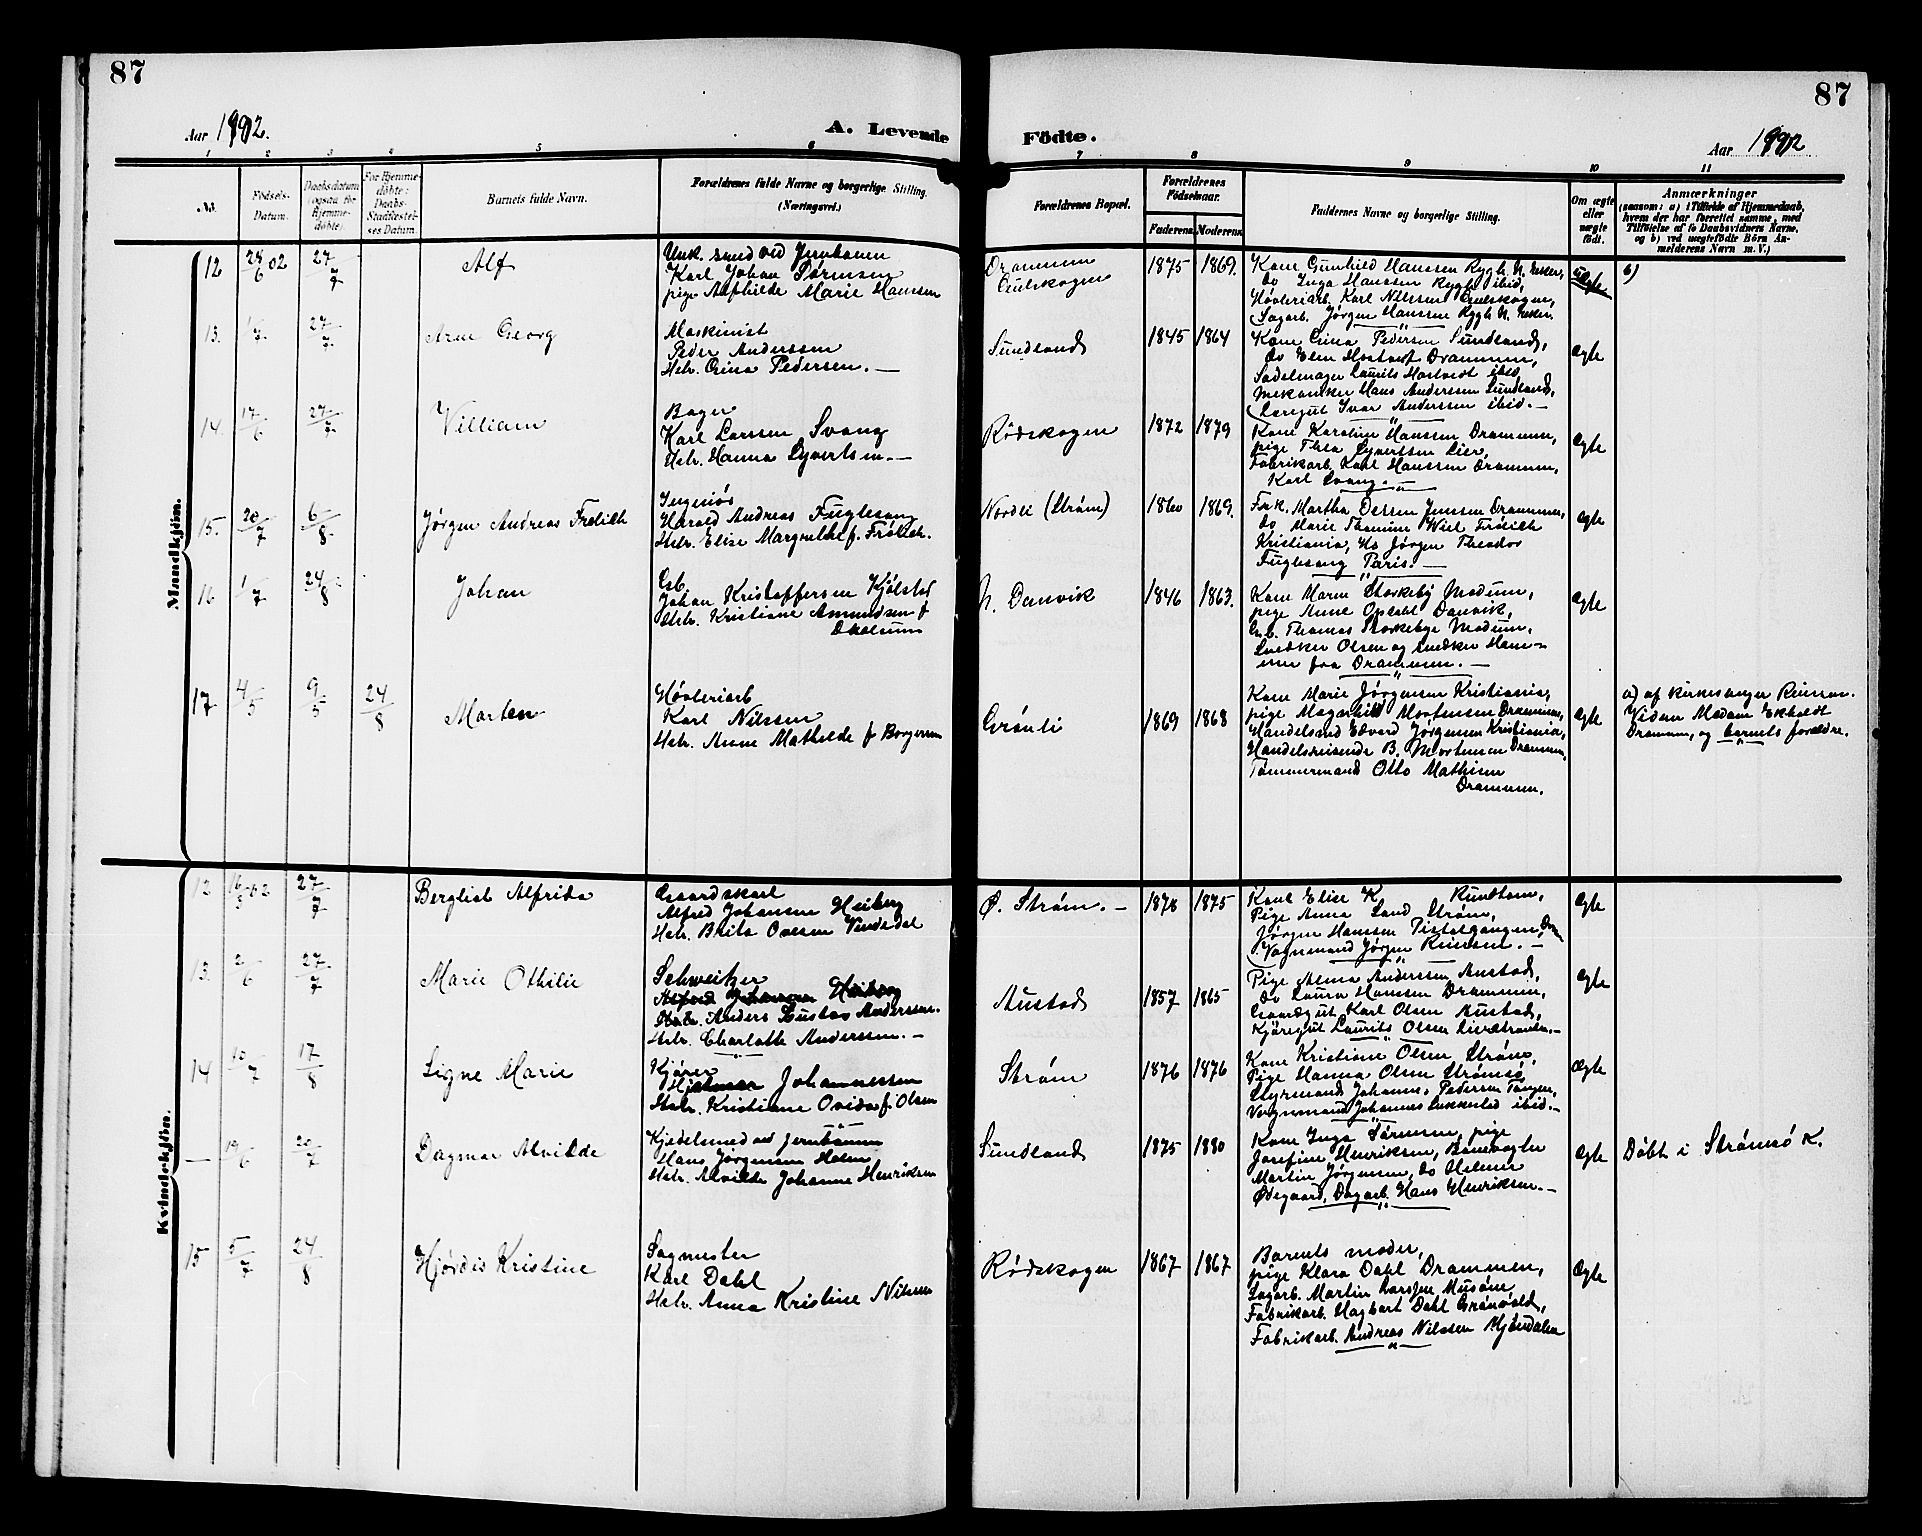 87
87
Aar 1902.
A. Levende
Födte.
Aar 1902
1 2 3 4 5 6 7 8 9 10 11
No.
Födsels-Datum.
Daabsdatum (ogsaa for Hjemme-döbte).
For Hjemme-döbte: Daabs-Stadfæstel-ses Datum.
Barnets fulde Navn.
Forældrenes fulde Navne og borgerlige Stilling. (Næringsvei.)
Forældrenes Bopæl.
Forældrenes Födselsaar.
Faderens. Moderens.
Faddernes Navne og borgerlige Stilling.
Om ægte eller uægte födt.
Anmærkninger
(saasom: a) i Tilfælde af Hjemmedaab,
hvem der har forrettet samme, med
Tilföielse af to Daabsvidners Navne,
og b) ved uægtefödte Börn An-
melderens Navn m. V.)
Mandkjön.
12 28/6 02 27/7 Alf
Karl Johan Sörensen
pige Alfhilde Marie Hanssen
Drammen
Gulskogen
1875 1869.
Kone Gunhild Hanssen Rygh N. Eeker,
do Inga Hanssen Rygh ibid,
Høvleriarb. Karl Nilssen Gulskogen,
Sagarb. Jørgen Hanssen Rygh N. Eeker.
b)
13. 1/7 27/7 Arne Georg
Maskinist
Peder Anderssen
Hstr. Grina Pedersen. —
Sundland
1845 1864
Kone Grina Pedersen Sundland,
do Elen Hostvet Drammen,
Sadelmager Laurits Hostvedt ibid,
Mekaniker Hans Anderssen Sundland,
Læregut Ivar Anderssen ibid. —
Ægte
14. 17/6 27/7 William
Bager
Karl Larssen Svang
Hstr. Hanna Syvertsen. —
Rødskogen
1872 1879
Kone Karoline Hanssen Drammen,
pige Thea Syvertssen Lier,
Fabrikarb. Karl Hanssen Drammen,
Karl Svang. —
Ægte
15. 20/7 6/8 Jørgen Andreas Frølich
Ingeniør
Harald Andreas Fuglesang
Hstr. Elise Margrethe f. Frølich.
Nordli (Strøm)
1860 1869.
Frk. Martha Dessen Jenssen Drammen,
do Marie Thomine Wiel Frølich
Kristiania, Hr. Jørgen Theodor
Fuglesang Paris. —
Ægte
16 1/7 24/8 Johan
Gsb.
Johan Kristoffersen Kjølstad
Hstr. Kristiane Amundsen f
N. Danvik
1846 1863.
Kone Maren Storkeby Modum,
pige Anne Opdahl Danvik,
Gsb. Thomas Storkebye Modum,
Snedker Olsen og Snedker Ham-
mer fra Drammen. —
Ægte
17 4/5 9/5 24/8 Morten
Høvleriarb
Karl Nilssen
Hstr. Anne Mathilde f Borgersen
Grønli
1869 1868
Kone Marie Jørgensen Kristiania,
pige Magnhild Mortensen Drammen,
Handelsmd Edvard Jørgensen Kristiania,
Handelsreisende B. Mortensen Drammen.
Tømmermand Otto Mathisen
Drammen.
Ægte
a) af Kirkesanger Riisnæs.
Vidnen Madam Ekholdt
Drammen, og barnets forældre.
Kvindekjön.
12 27/7 Bergliot Alfrida
Gaardskarl
Alfred Johansen Heiberg
Hstr. Brita Ovesen Vindedal
Ø. Strøm. —
1876 1875
Kone Elise K Knudtsen,
Pige Anna Sand Strøm,
Jørgen Hanssen Tistelgangen Drm
Vognmand Jørgen Knudsen. —
Ægte
13. 2/6 27/7 Marie Othilie
Schweitzer
Hstr. Anders Gustav Anderssen.
Hstr. Charlotte Anderssen. —
Austad
1857 1865
Pige Alma Anderssen Austad,
Do Laura Hanssen Drammen,
Gaardsgut Karl Olsen Austad,
Kjøregut Laurits Olsen Lierstranden. —
Ægte
14 10/7 17/8 Signe Marie
Kjører
Hjalmar Johannessen
Hstr. Kristiane Ovida f. Olsen
Strøm
1876 1876
Kone Kristiane Olsen Strøm,
Pige Hanna Olsen Strømsø,
Styrmand Johannes Pedersen Tangen,
Vognmand Johannes Lukkestad ibid. —
Ægte
— 19/6 20/7 Dagmar Alvilde
Kjedelsmed ved Jernbanen
Hans Jørgensen Holm
Hstr. Alvilde Johanne Henriksen
Sundland
1875 1880
Kone Inga Sørensen, pige
Josefine Henriksen, Banevogter
Martin Jørgensen, do Helmer
Ødegaard, Dagarb. Hans Henriksen. —
Ægte
Døbt i Strømsø K.
15 5/7 24/8 Hjørdis Kristine
Sagmester
Karl Dahl
Hstr. Anna Kristine Nilsen
Rødskogen
1867 1867
Barnets moder,
pige Klara Dahl Drammen,
Sagarb. Martin Larssen Musøen,
Fabrikarb. Hagbart Dahl Grønvold,
Fabrikarb. Andreas Nilssen Mjøndalen
Ægte